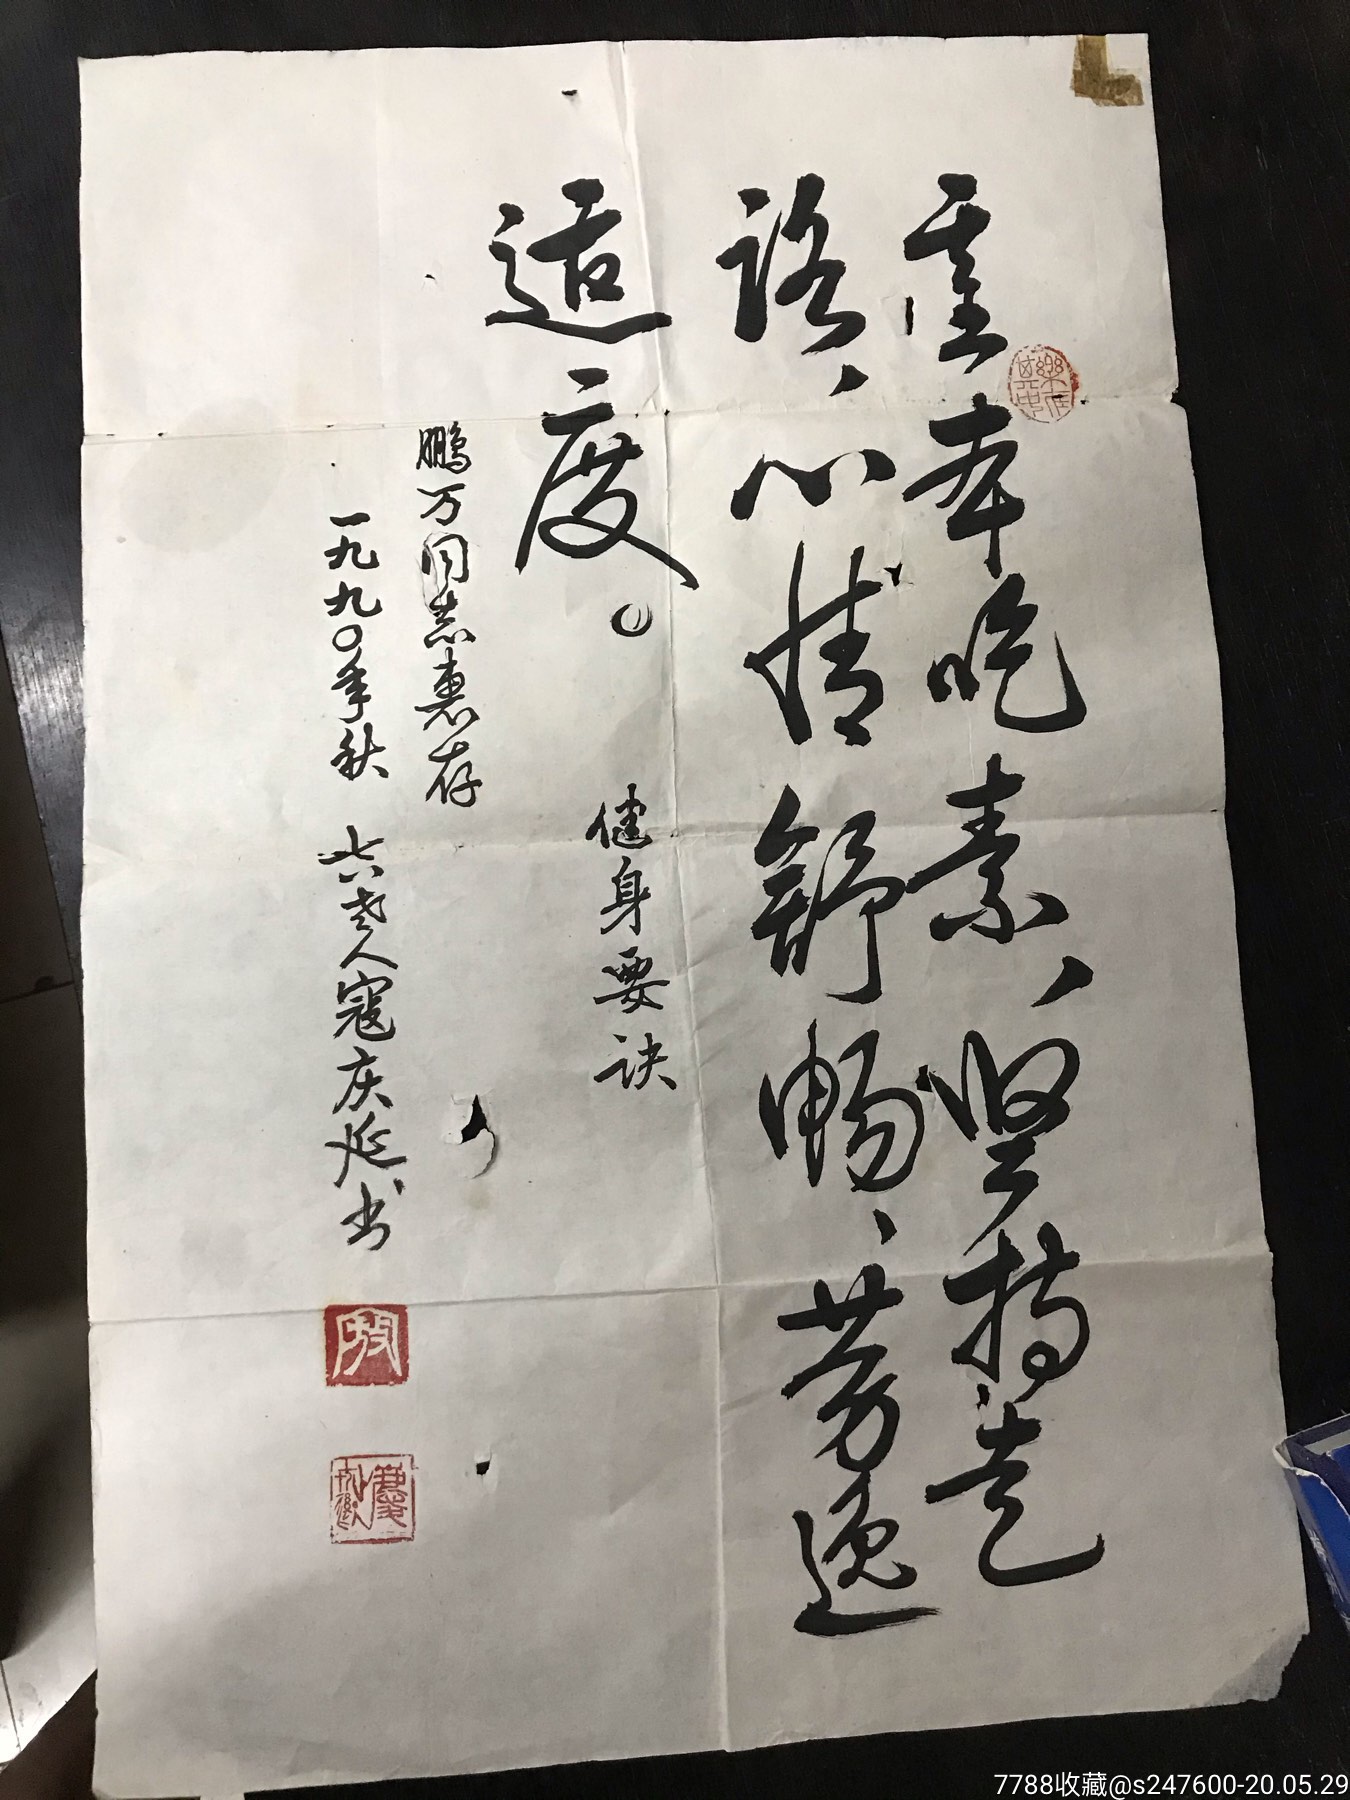 基本吃素、坚持走
路、心情舒畅、劳逸
适度。
健身要诀
鹏万同志惠存
一九九〇年秋 七八老人寇庆延书
乐在其中
7788收藏@s247600-20.05.29